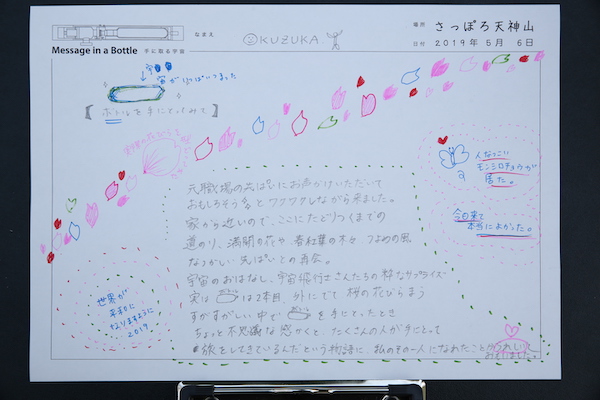 なまえ
KUZUKA
場所 さっぽろ天神山
日付 2019年 5月 6日
Message in a Bottle 手に取る宇宙
宇宙
宙がいっぱいつまった
【ボトルを手にとってみて】
人なつこい
モンシロチョウが
居た。
今日来て
本当によかった。
元職場の先ぱいにお声がけいただいて
おもしろそう とワクワクしながら来ました。
家から近いので、ここにたどりつくまでの
道のり、満開の花や、春紅葉の木々 つよめの風
なつかしい先ぱいとの再会。
宇宙のおはなし、宇宙飛行士さんたちの粋なサプライズ
実は は2本目。外にでて 桜の花びらまう
すがすがしい中で を手にとったとき
ちょっと不思議な感かくと、たくさんの人が手にとって
旅をしてきているんだという物語に、私もその一人になれたことがうれしいと
おもいました。
世界が
なりますように
2019